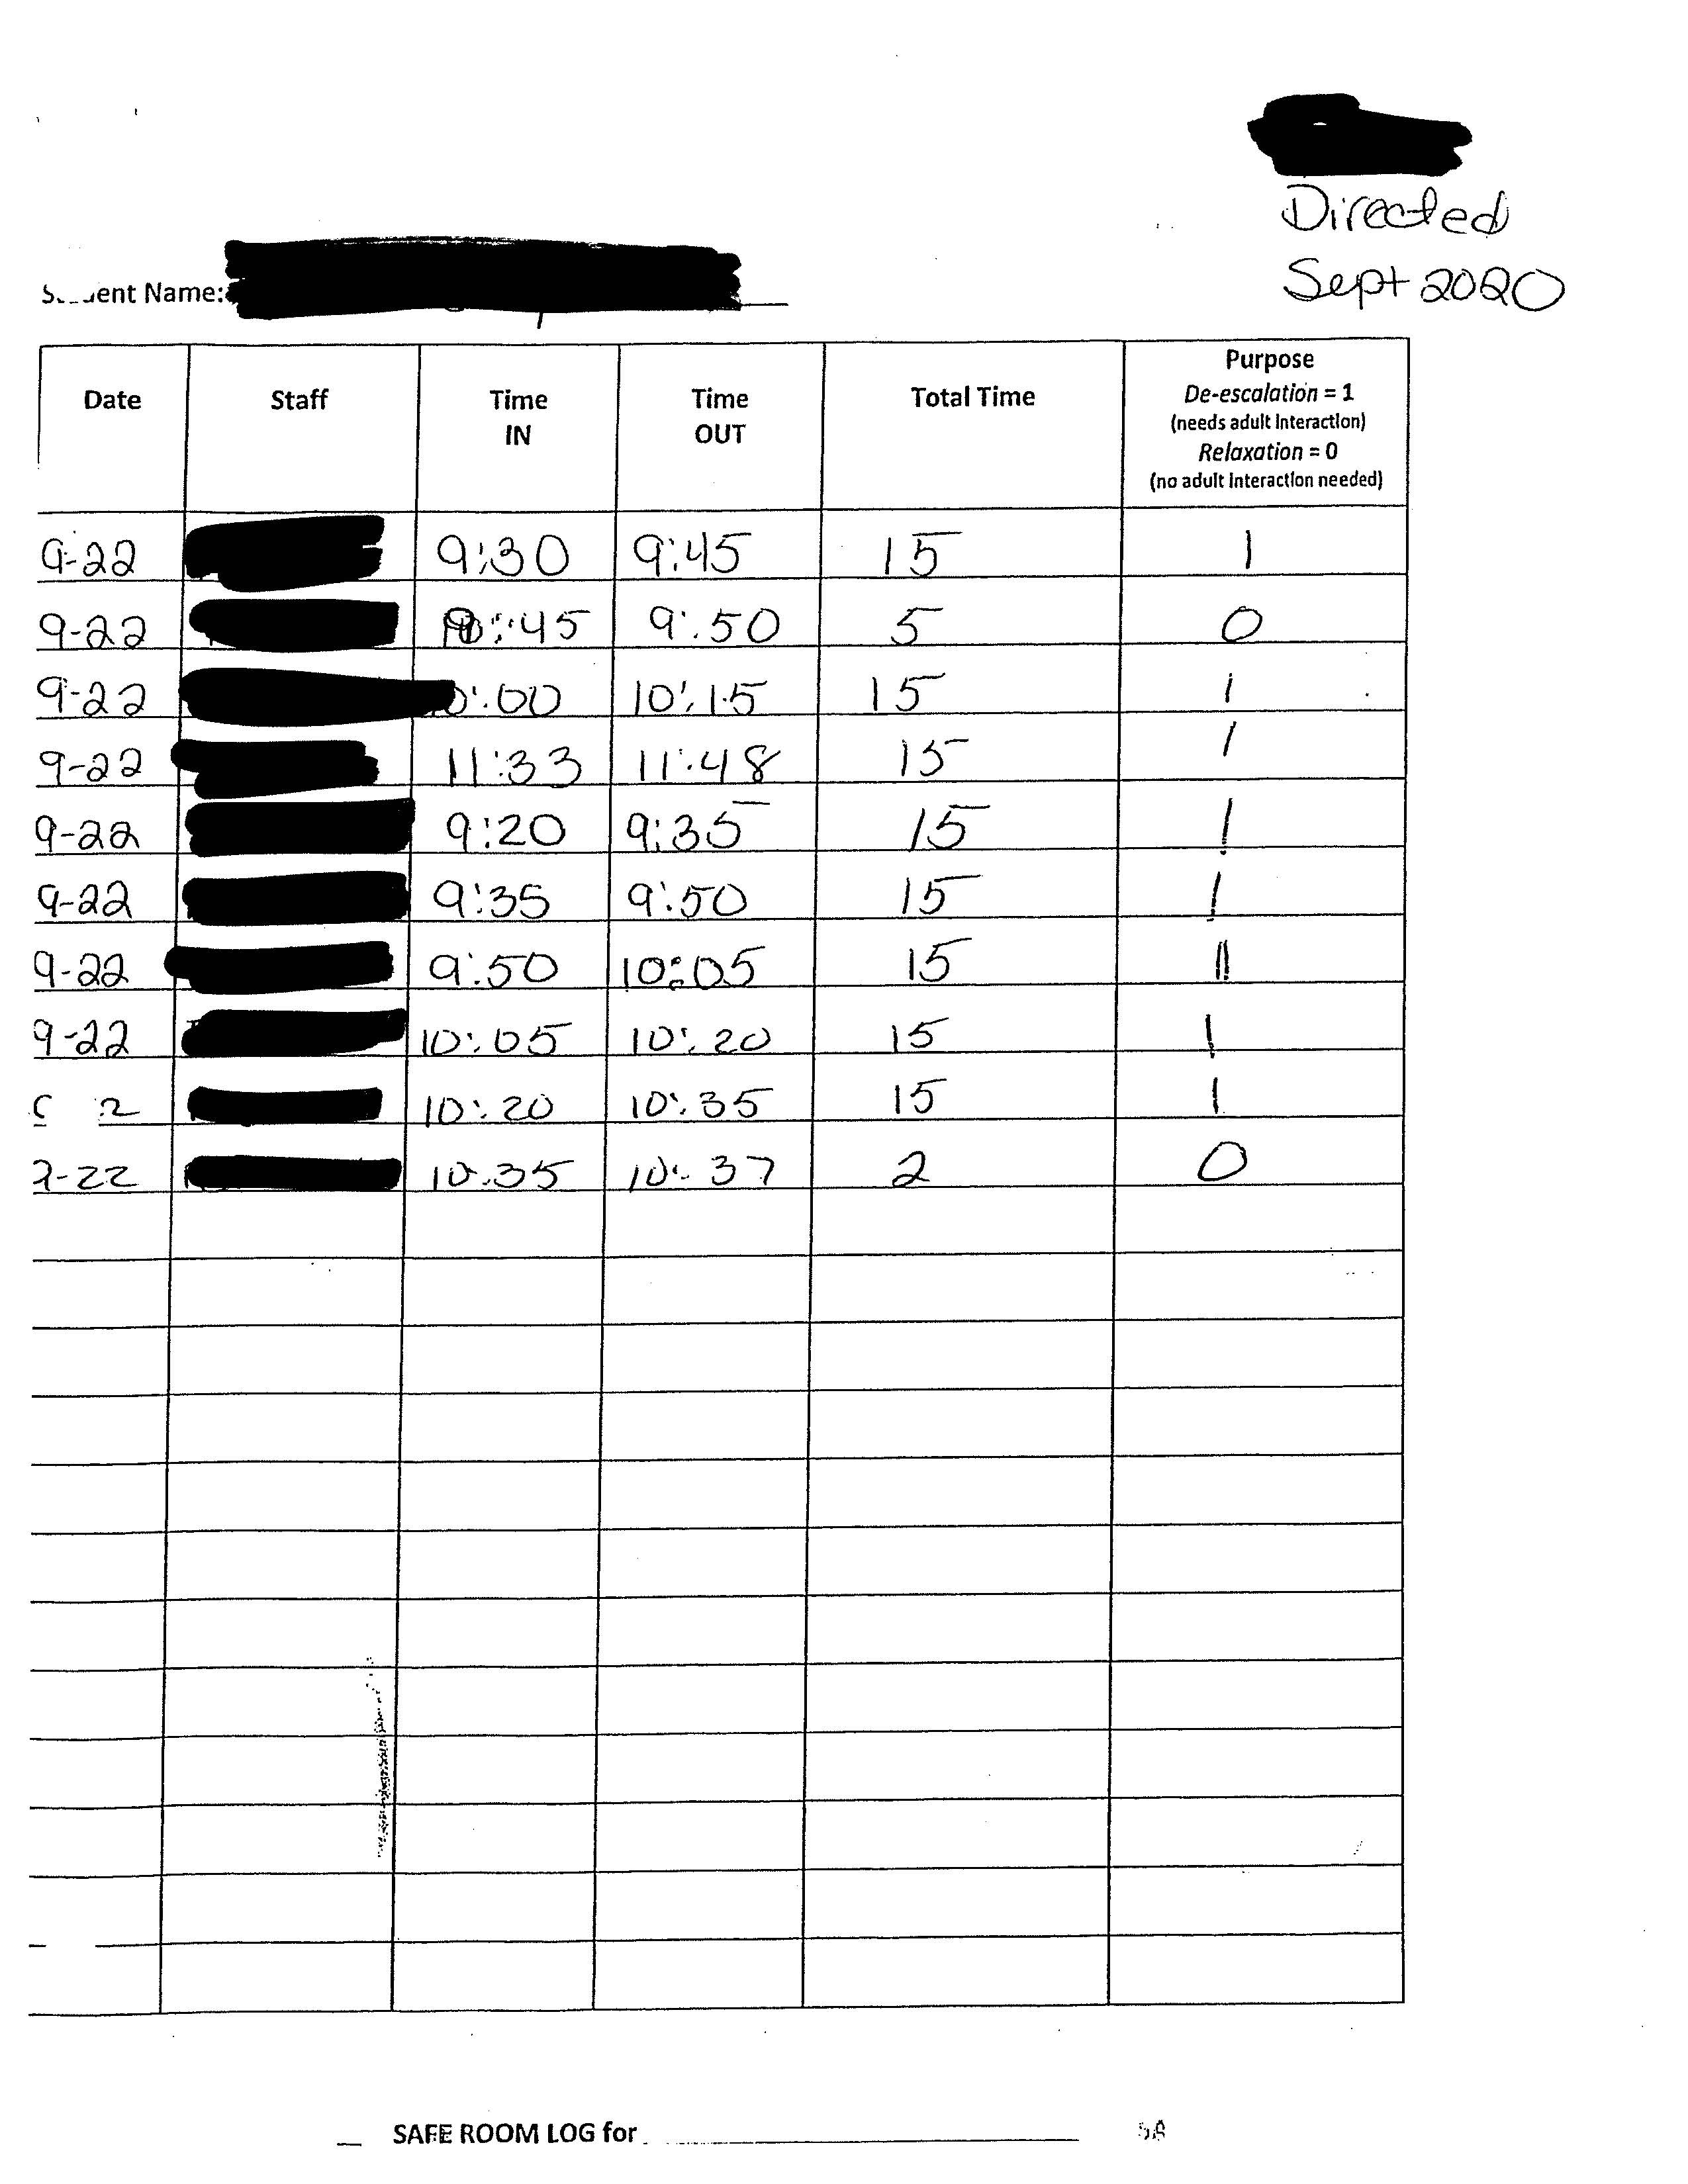 Directed
Sept 2020
Student Name:
Date Staff Time IN Time OUT Total Time Purpose
De-escalation = 1
(needs adult interaction)
Relaxation = 0
(no adult interaction needed)
9-22 9:30 9:45 15 1
9-22 9:45 9:50 5 0
9-22 0:00 10:15 15 1
9-22 11:33 11:48 15 1
9-22 9:20 9:35 15 1
9-22 9:35 9:50 15 1
9-22 9:50 10:05 15 1
9-22 10:05 10:20 15 1
2 10:20 10:35 15 1
-22 10:35 10:37 2 0
SAFE ROOM LOG for